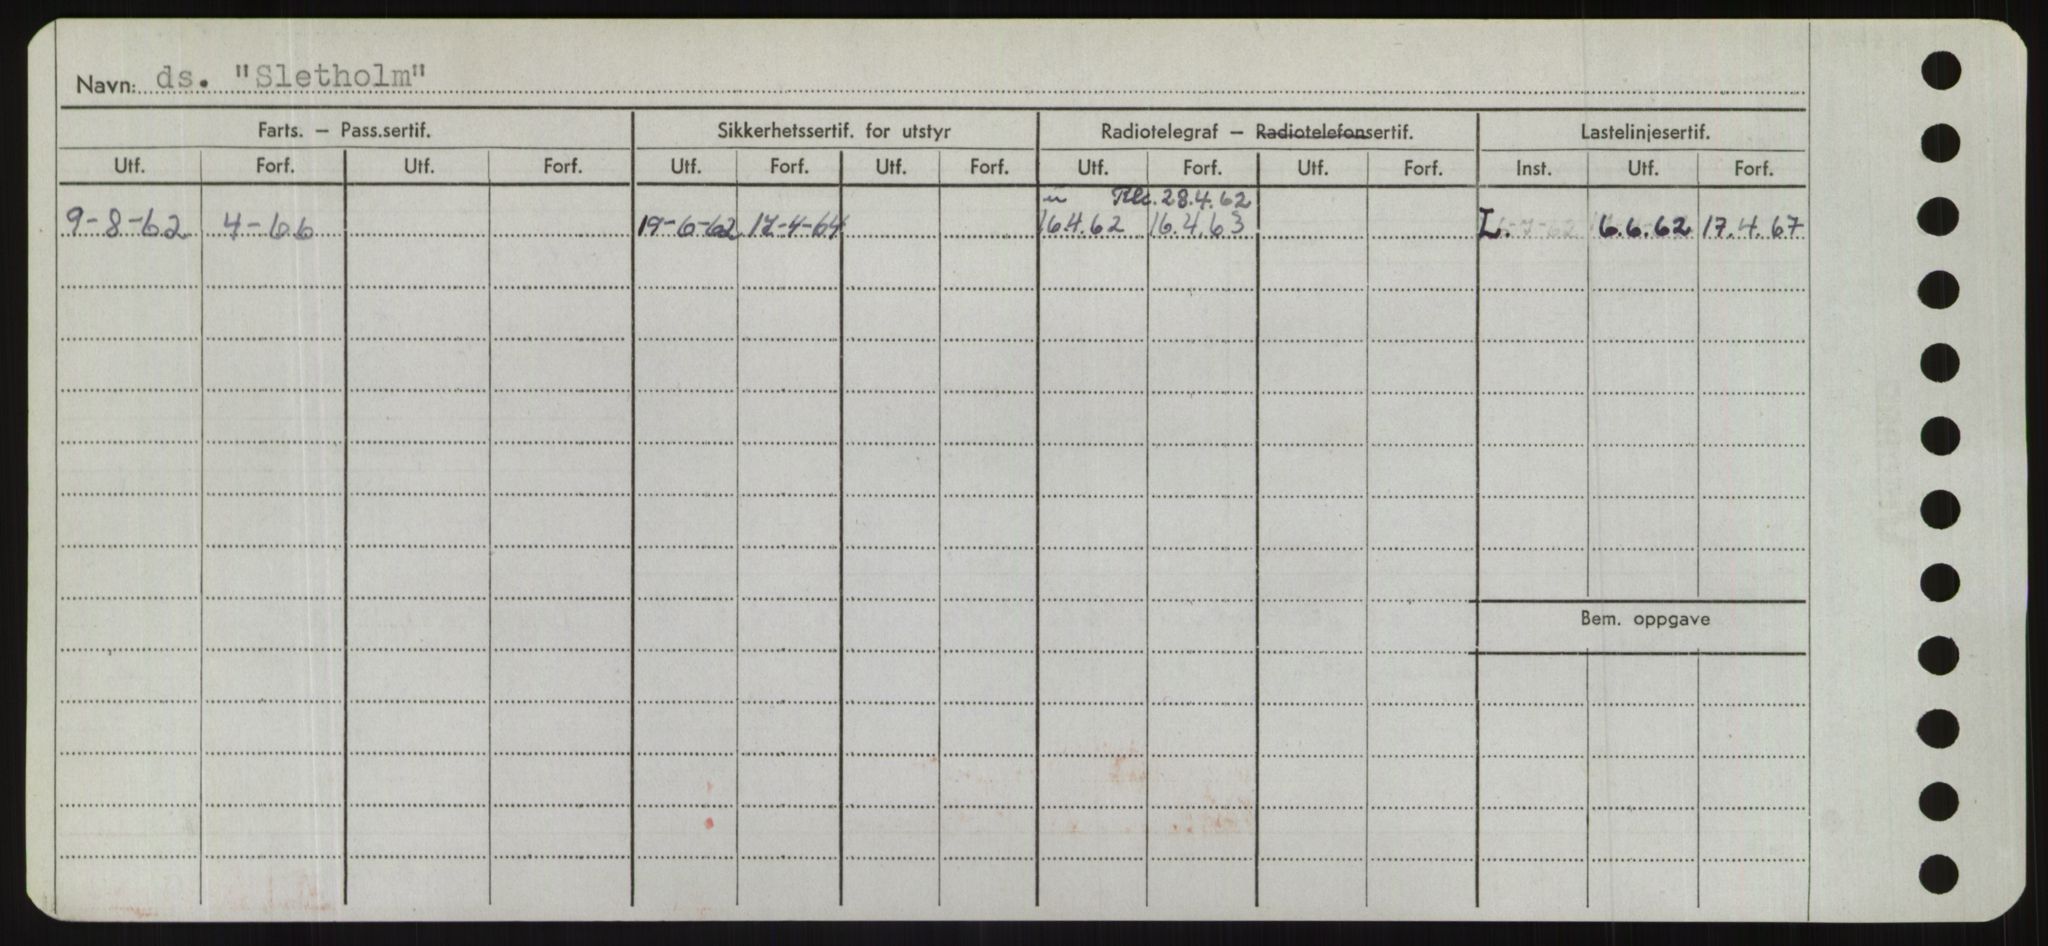 Navn: ds. "Sletholm"
Farts. – Pass.sertif. Sikkerhetssertif. for utstyr Radiotelegraf – Radiotelefonsertif. Lastelinjesertif.
Utf. Forf. Utf. Forf. Utf. Forf. Utf. Forf. Utf. Forf. Utf. Forf. Inst. Utf. Forf.
28.4.62
9-8-62 4-66 19-6-62 17-4-64 16.4.62 16.4.63 L. 6.6.62 17.4.67
Bem. oppgave